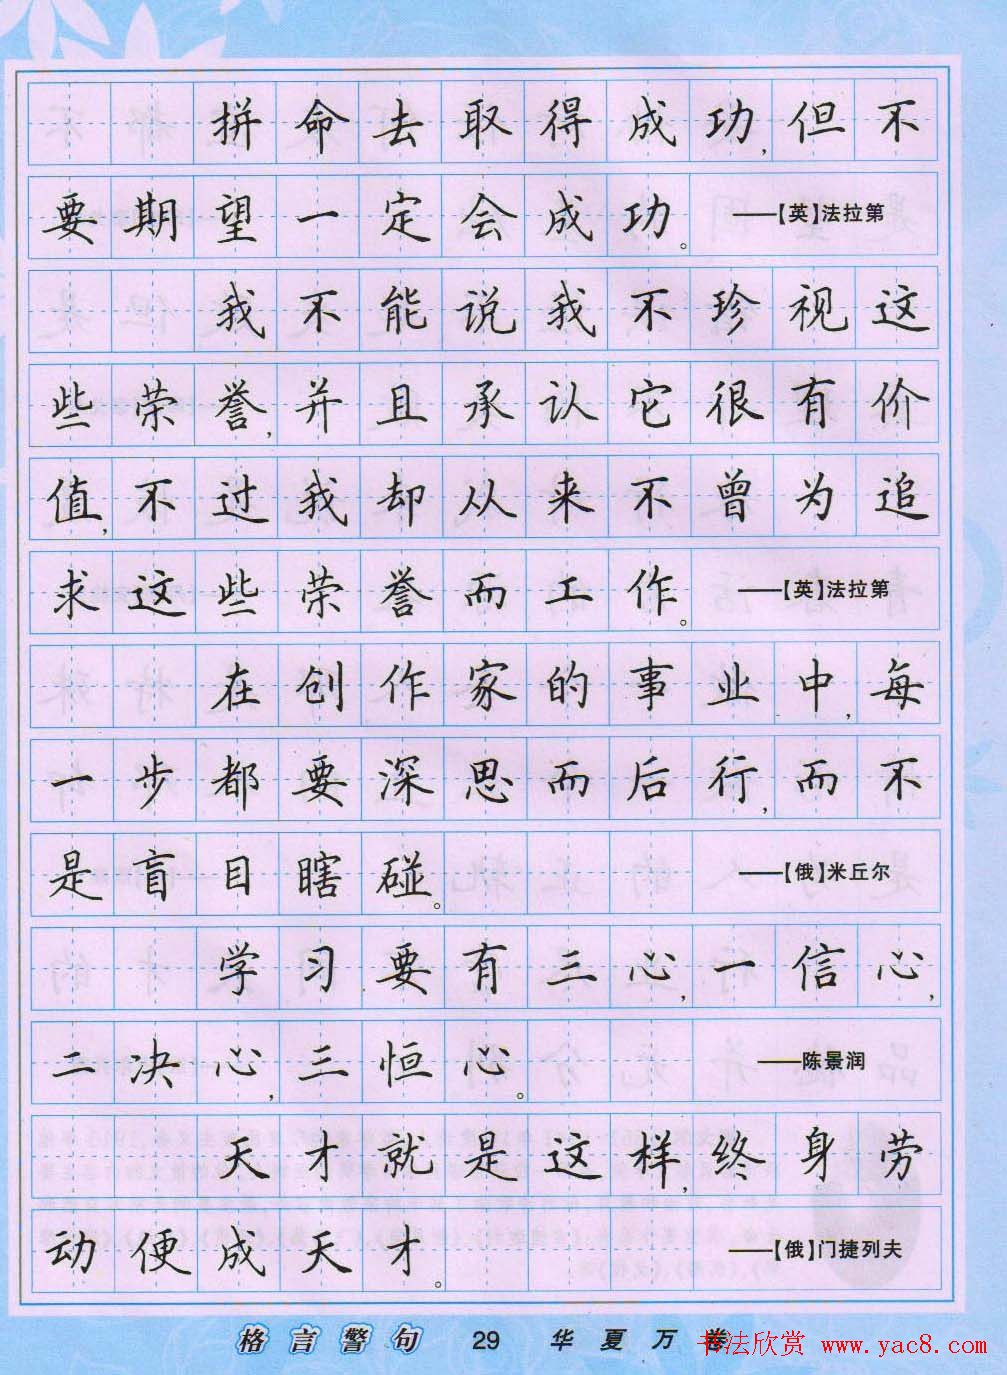 拼命去取得成功,但不
要期望一定会成功。 ——【英】法拉第
我不能说我不珍视这
些荣誉,并且承认它很有价
值,不过我却从来不曾为追
求这些荣誉而工作。 ——【英】法拉第
在创作家的事业中,每
一步都要深思而后行,而不
是盲目瞎碰。 ——【俄】米丘尔
学习要有三心,一信心,
二决心,三恒心。 ——陈景润
天才就是这样,终身劳
动便成天才。 ——【俄】门捷列夫
格言警句 29 华夏万卷
书法欣赏 www.yac8.com